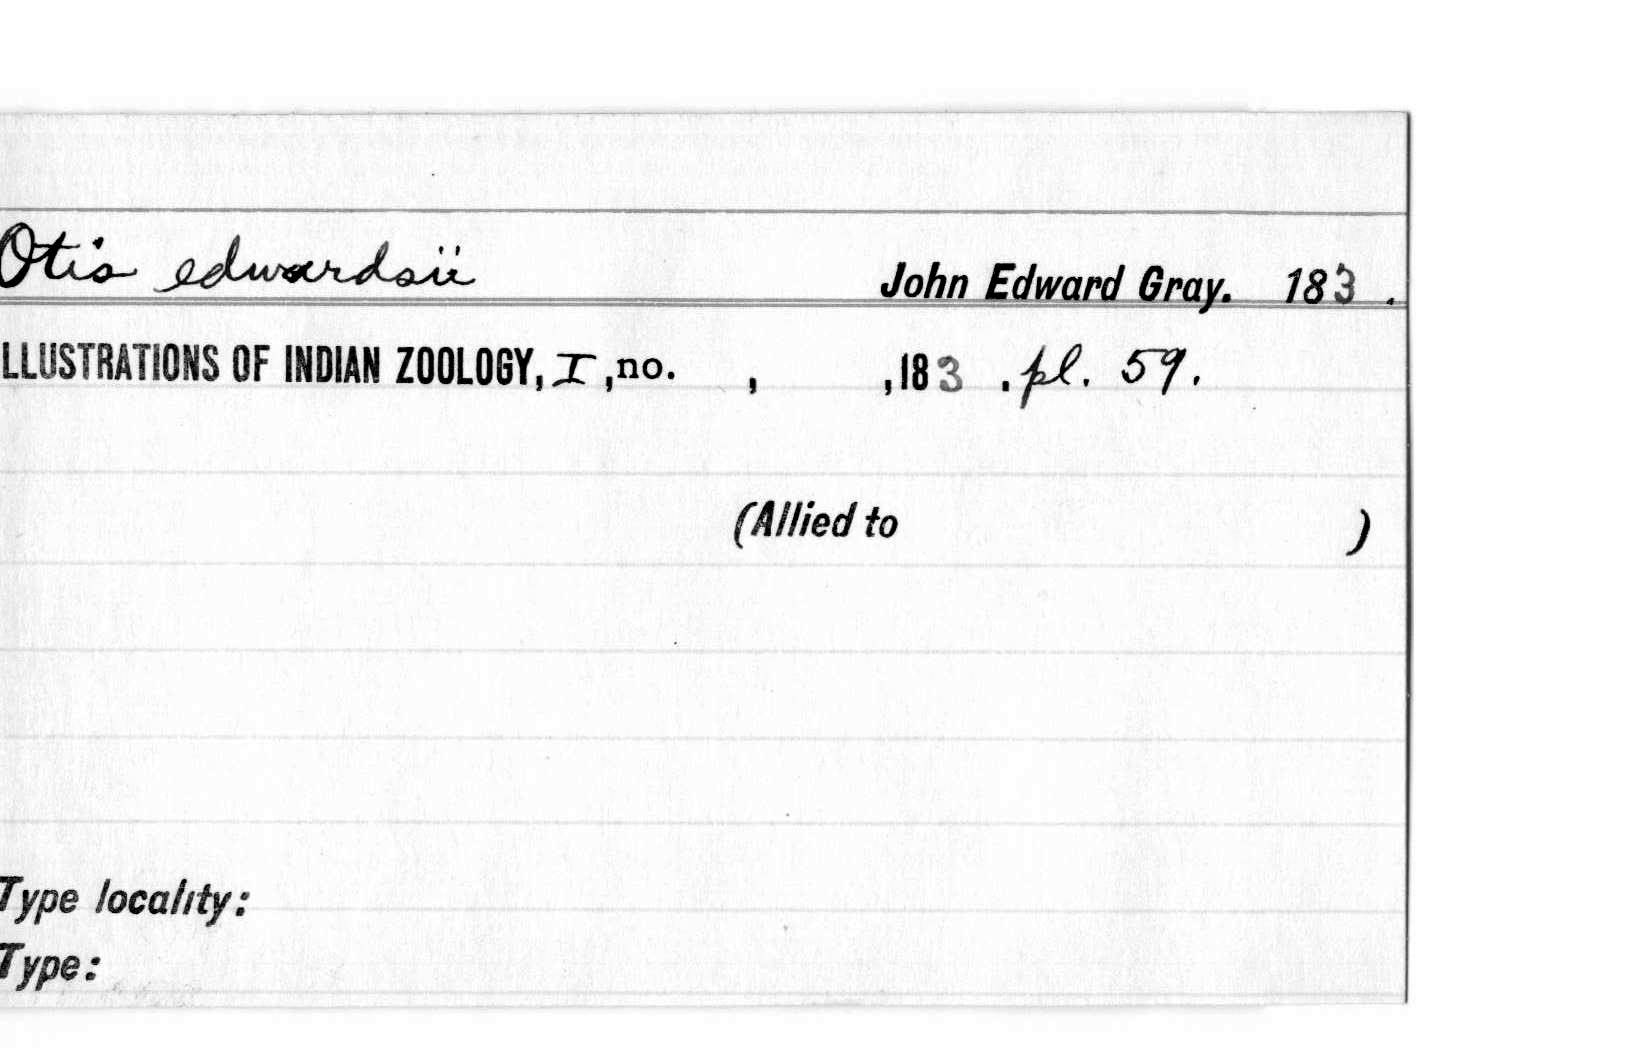 Otis edwardsii John Edward Gray. 183 .
LLUSTRATIONS OF INDIAN ZOOLOGY, I ,no. , ,183 . pl. 59.
(Allied to )
Type locality:
Type: